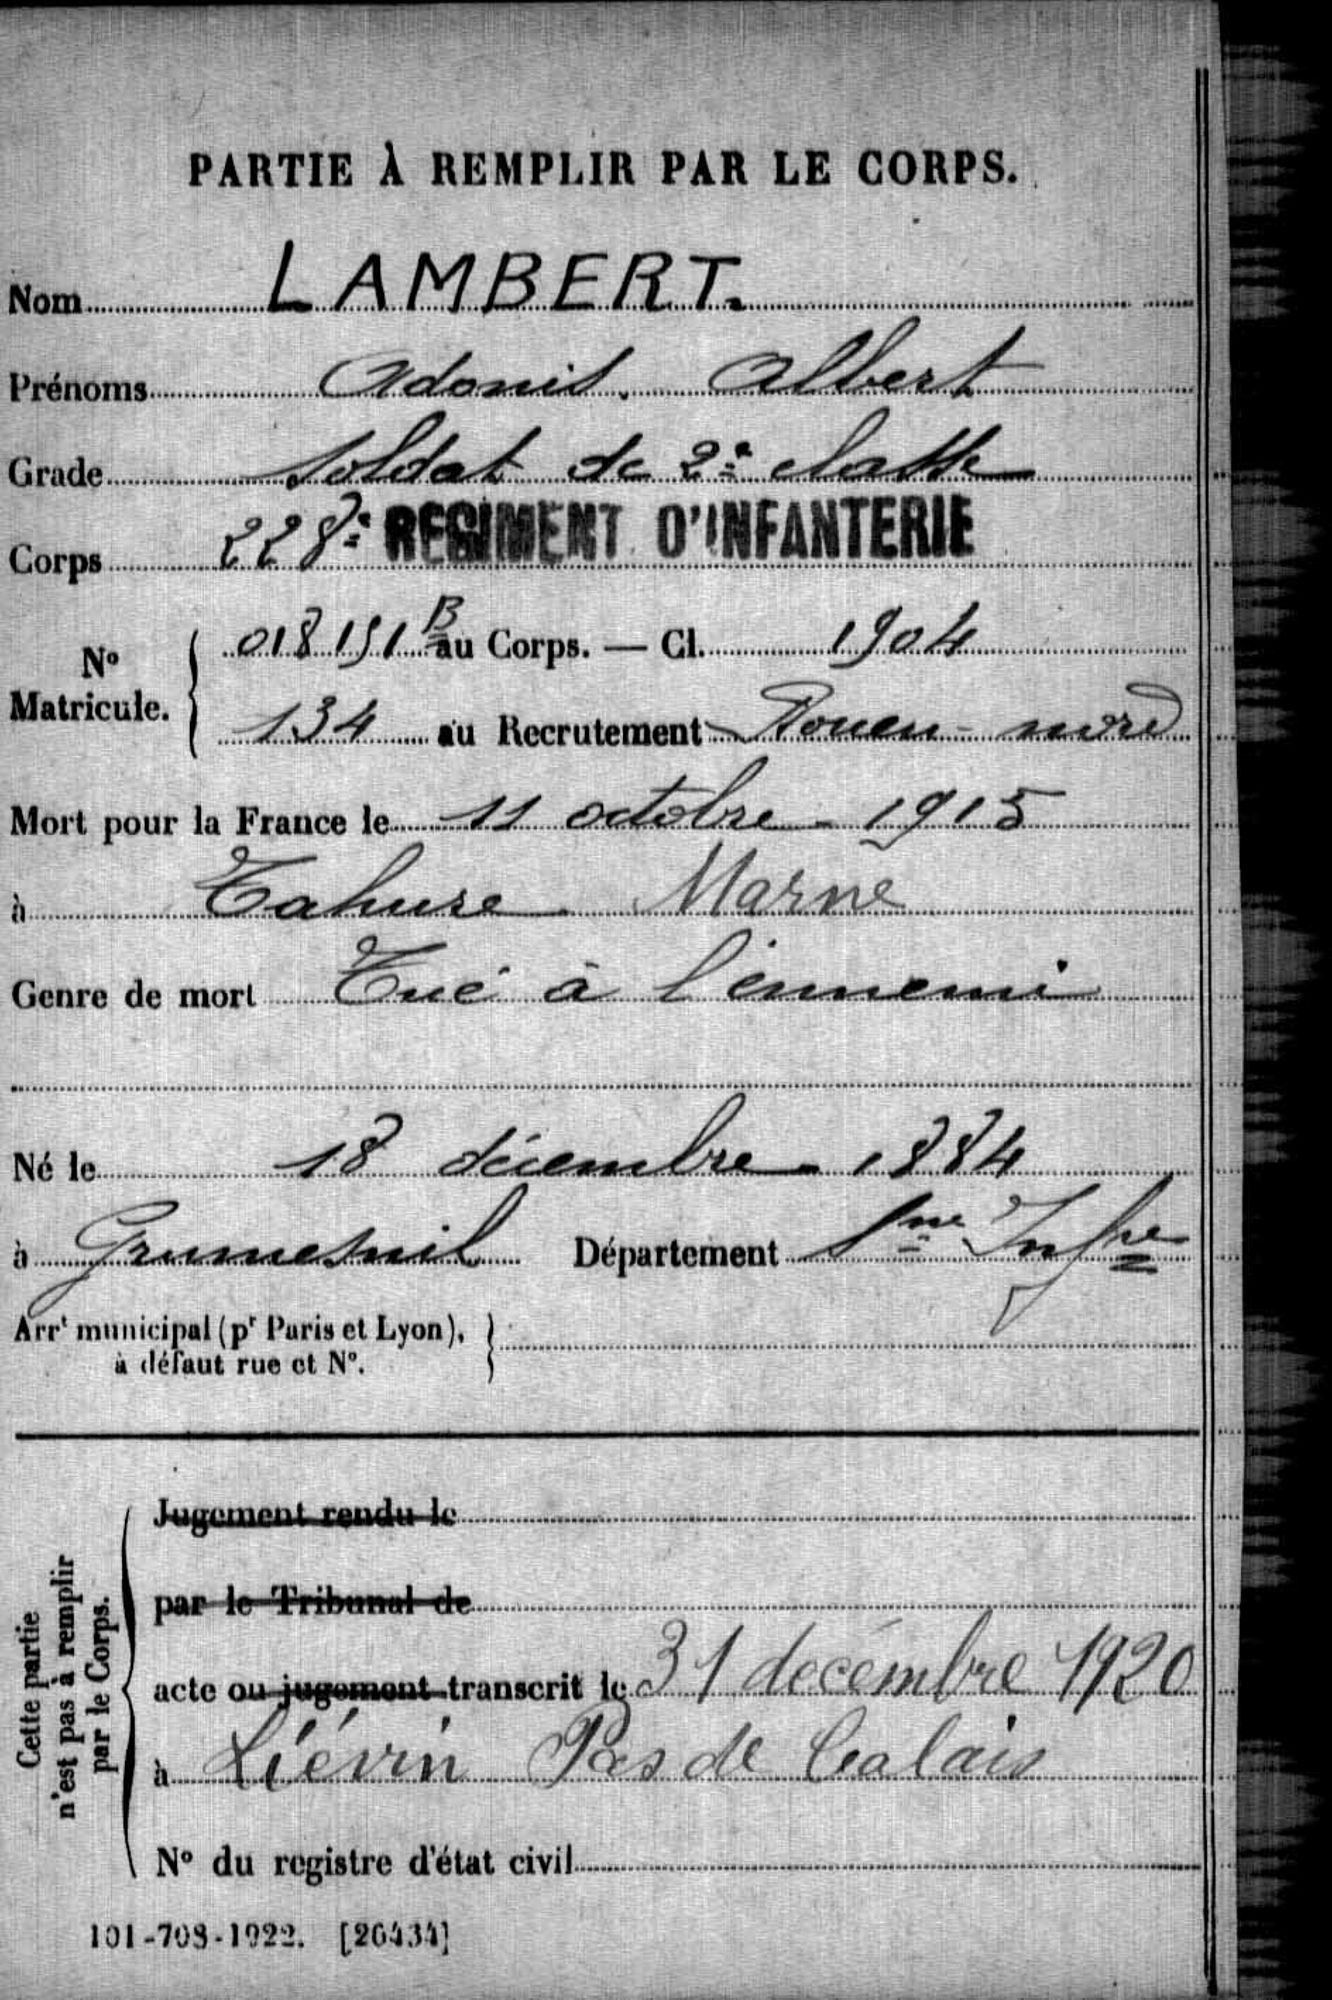 PARTIE À REMPLIR PAR LE CORPS.
Nom LAMBERT.
Prénoms Adonis. Albert
Grade Soldat de 2e classe
Corps 228e REGIMENT D'INFANTERIE
N° Matricule. 018151 B au Corps. — Cl. 1904
134 au Recrutement Rouen-nord
Mort pour la France le 11 octobre 1915
à Tahure Marne
Genre de mort Tué à l'ennemi
Né le 18 décembre 1884
à Grumesnil Département Sne Infre
Arrt municipal (pr Paris et Lyon),
à défaut rue et N°.
Cette partie
n'est pas à remplir
par le Corps.
Jugement rendu le
par le Tribunal de
acte ou jugement transcrit le 31 decémbre 1920
à Liévin Pas de Calais
N° du registre d'état civil
101-708-1922. [26434]